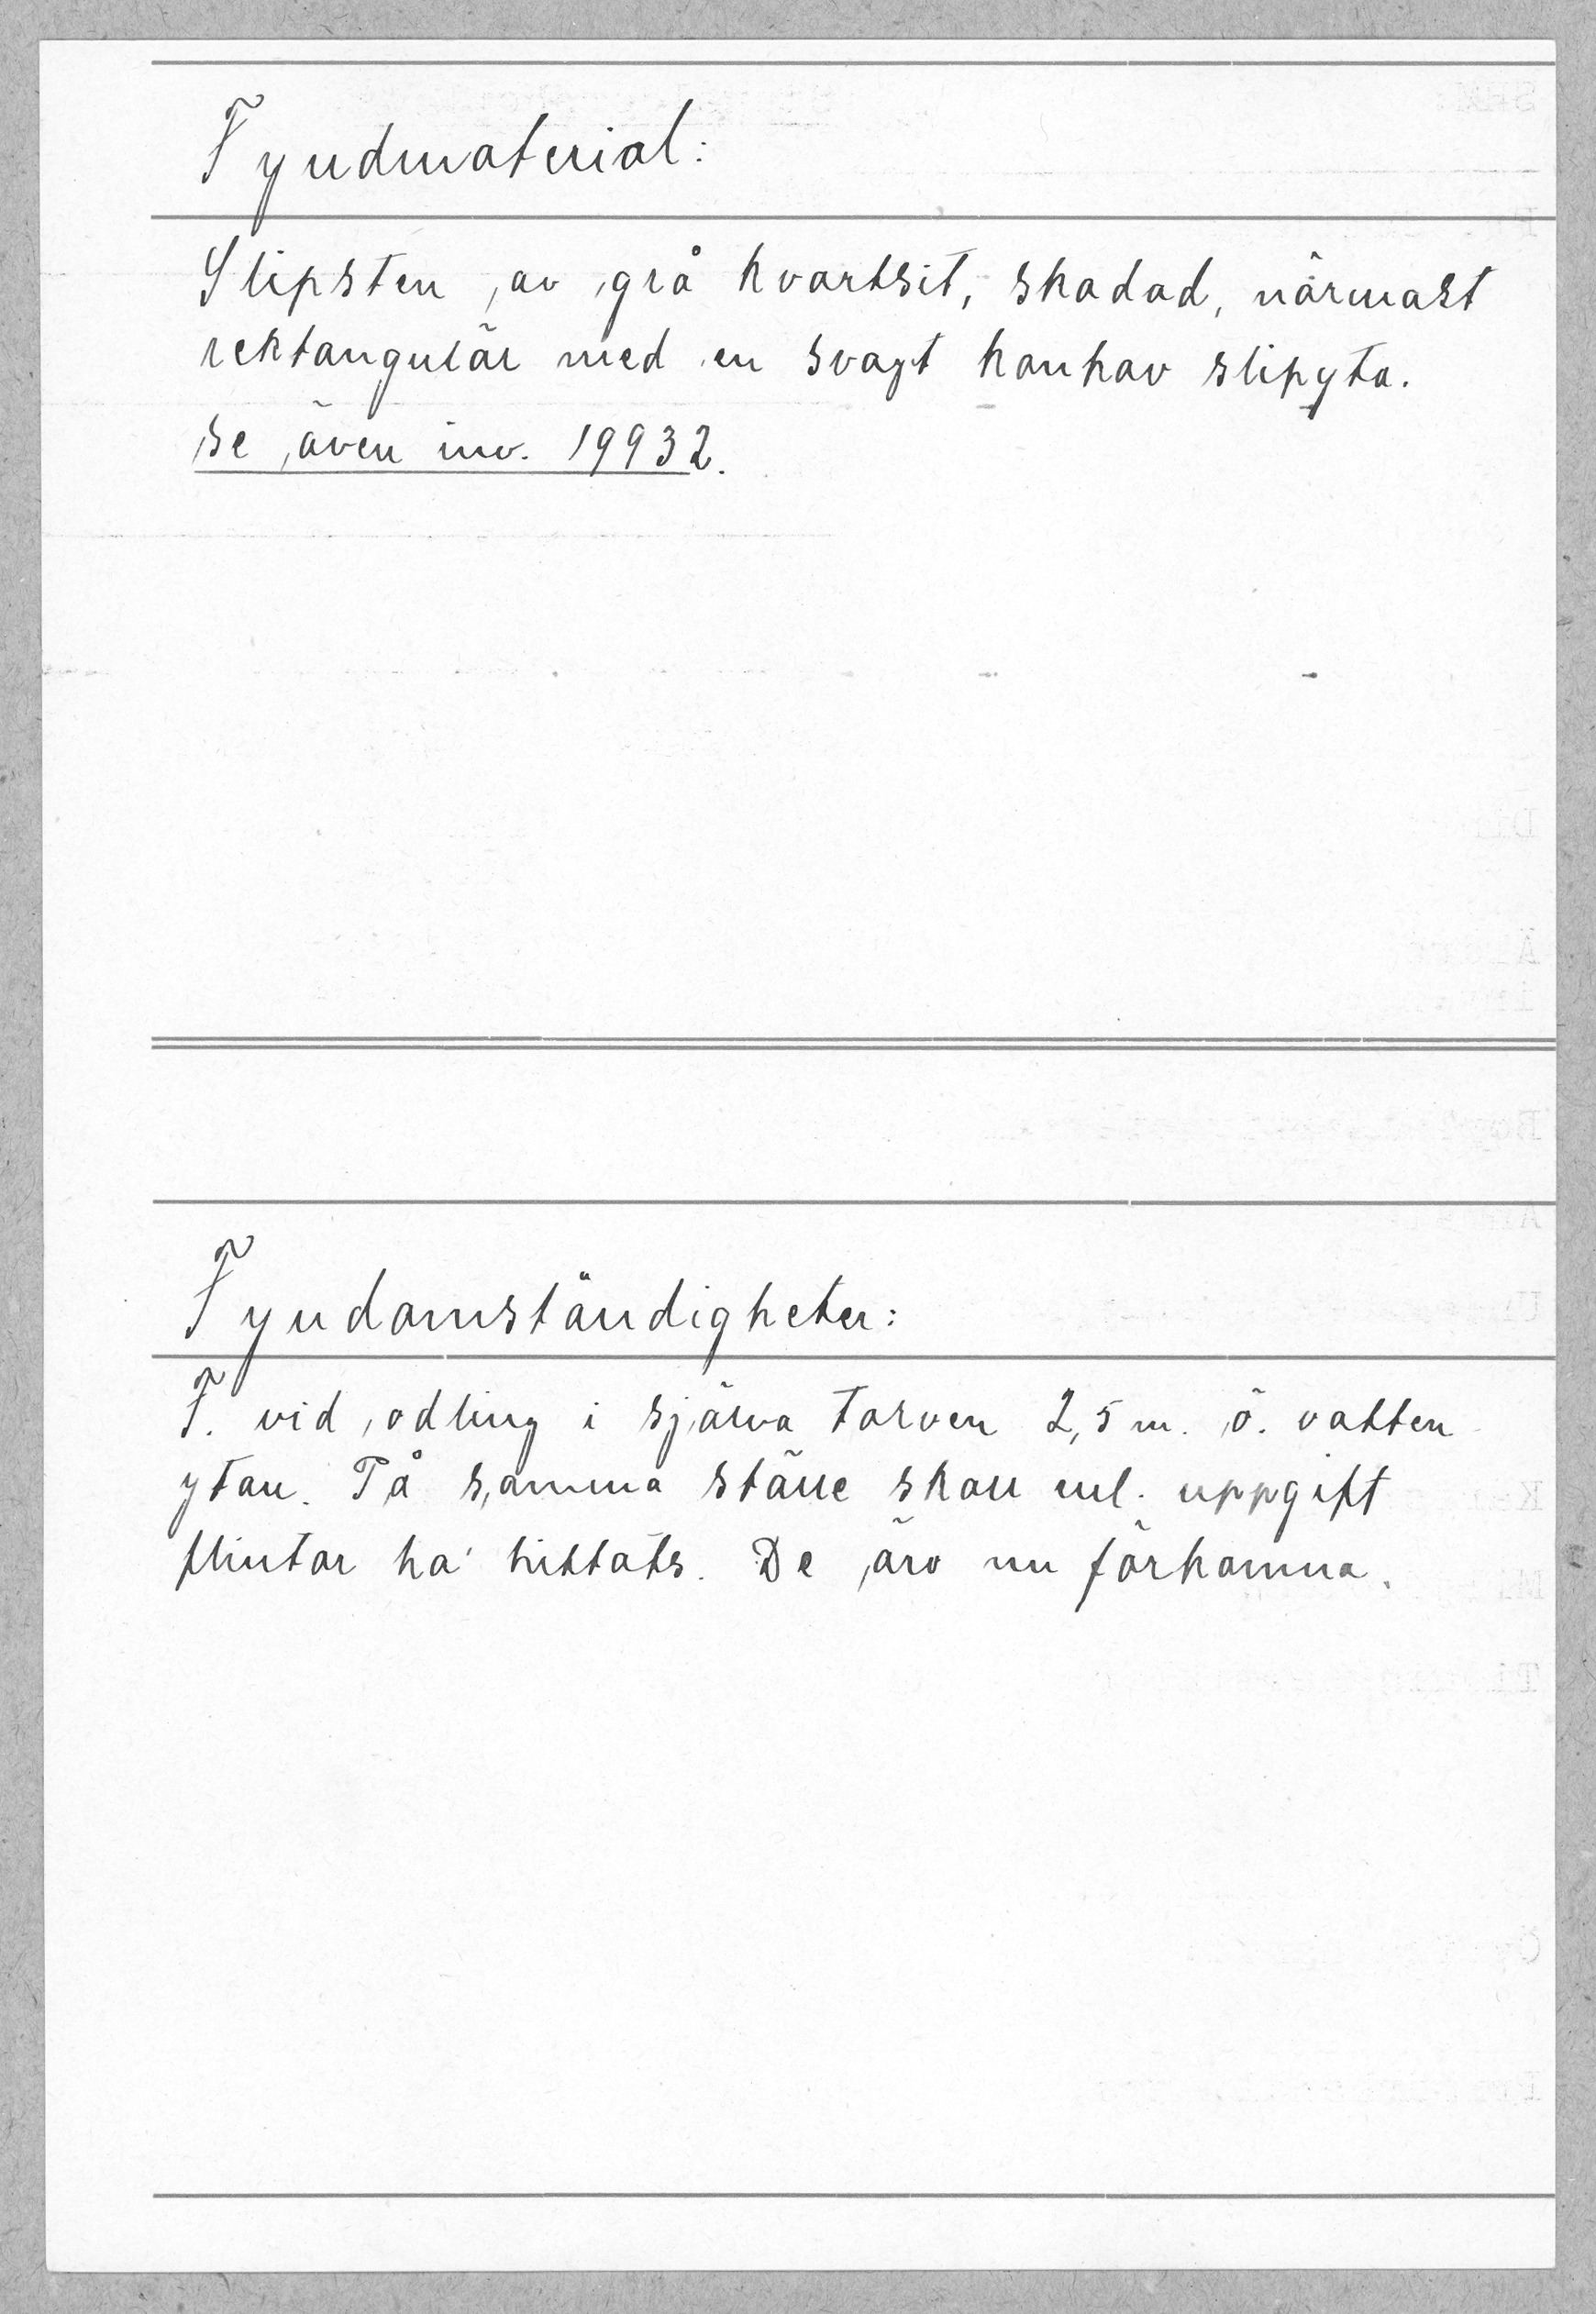 Fyndmaterial:
Slipsten av grå kvartsit, skadad, närmast
rektangulär med en svagt konkav slipyta.
Se även inv. 19932.
Fyndomständigheter:
F. vid odling i själva torven 2,5 m. ö. vatten
ytan. På samma ställe skall enl. uppgift
flintor ha hittats. De äro nu förkomna.